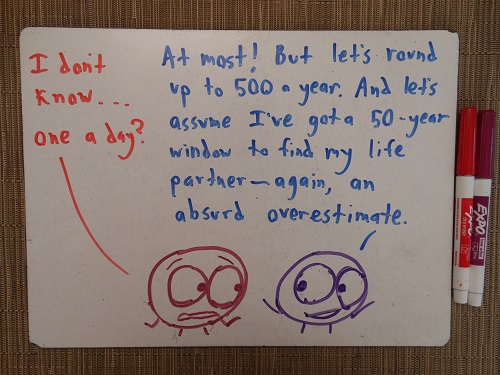 I don't
know...
one a day?
At most! But let's round
up to 500 a year. And let's
assume I've got a 50-year
window to find my life
partner—again, an
absurd overestimate.
EXPO
EXPO